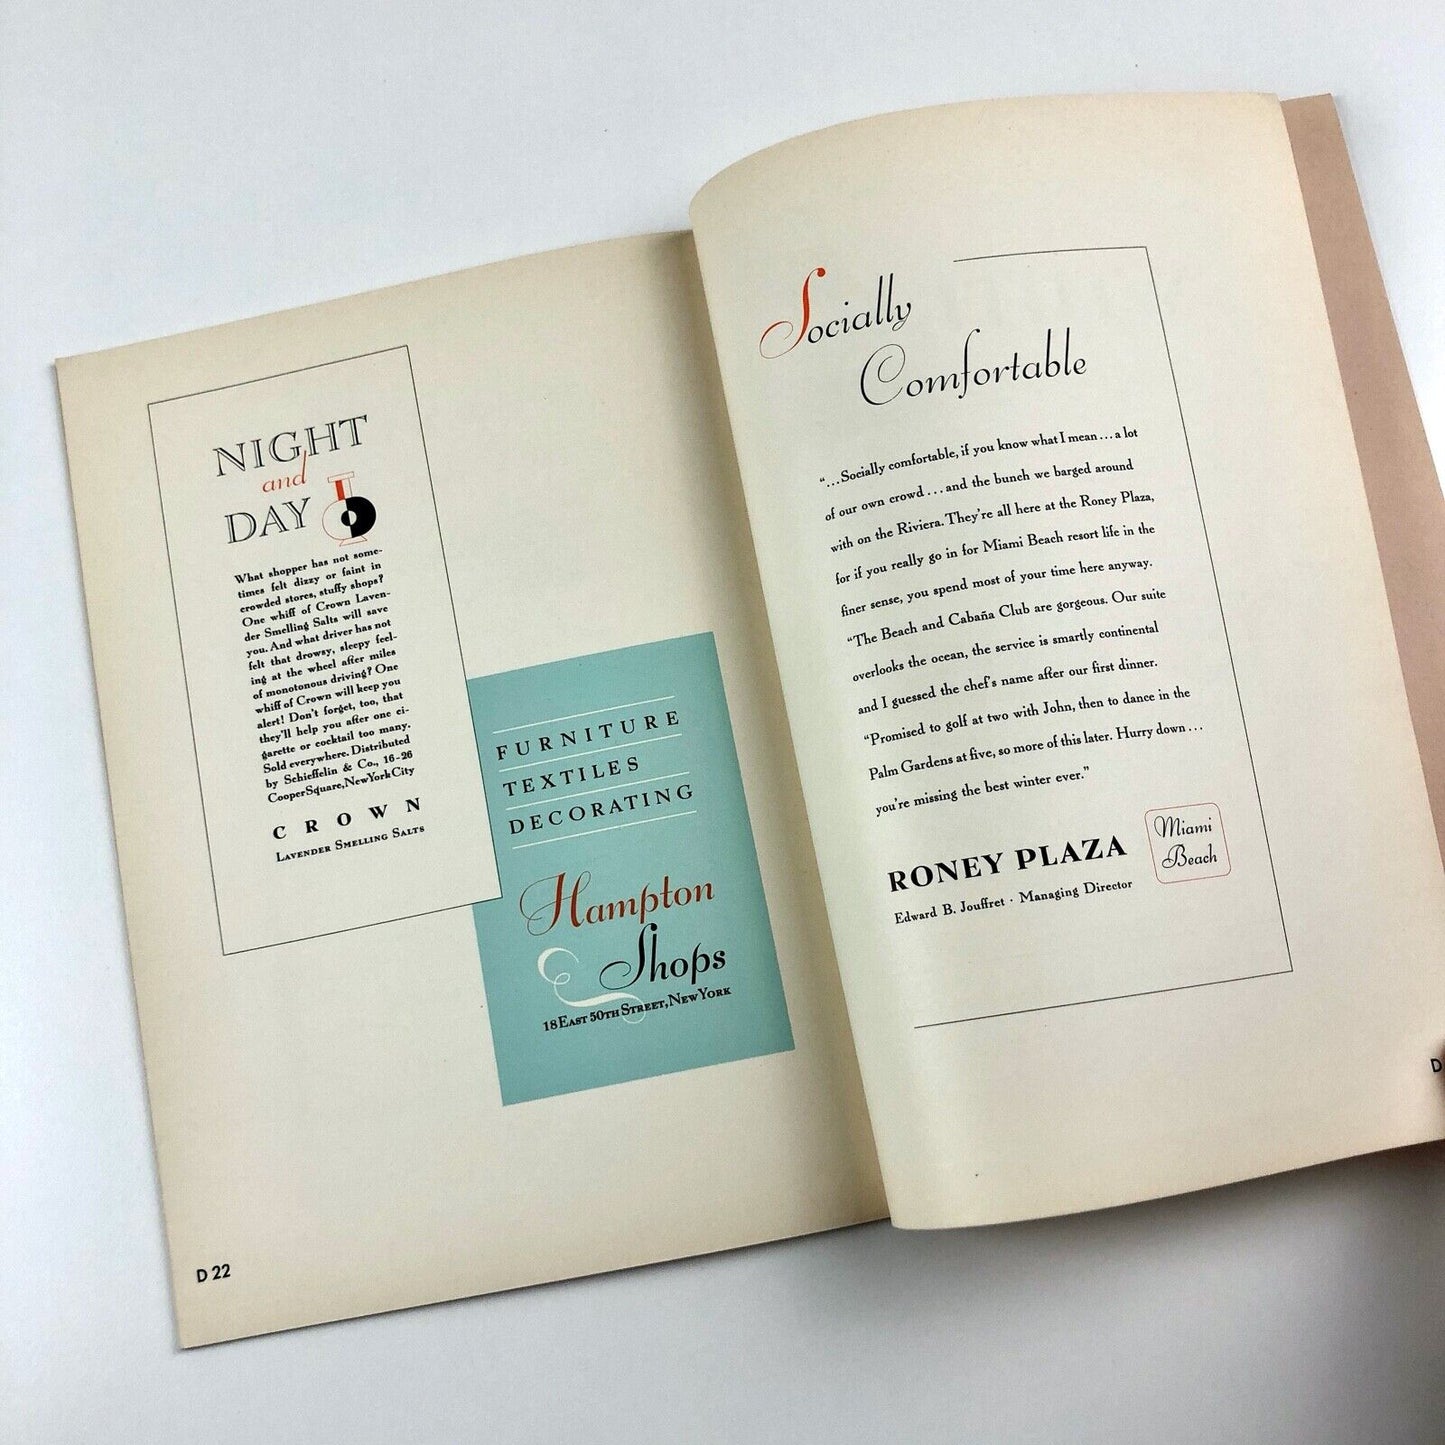 NIGHT
and
DAY
What shopper has not some-
times felt dizzy or faint in
crowded stores, stuffy shops?
One whiff of Crown Laven-
der Smelling Salts will save
you. And what driver has not
felt that drowsy, sleepy feel-
ing at the wheel after miles
of monotonous driving? One
whiff of Crown will keep you
alert! Don't forget, too, that
they'll help you after one ci-
garette or cocktail too many.
Sold everywhere. Distributed
by Schieffelin & Co., 16-26
Cooper Square, New York City
CROWN
LAVENDER SMELLING SALTS
FURNITURE
TEXTILES
DECORATING
Hampton
Shops
18 EAST 50TH STREET, NEW YORK
D 22
Socially
Comfortable
“...Socially comfortable, if you know what I mean...a lot
of our own crowd...and the bunch we barged around
with on the Riviera. They're all here at the Roney Plaza,
for if you really go in for Miami Beach resort life in the
finer sense, you spend most of your time here anyway.
“The Beach and Cabaña Club are gorgeous. Our suite
overlooks the ocean, the service is smartly continental
and I guessed the chef's name after our first dinner.
“Promised to golf at two with John, then to dance in the
Palm Gardens at five, so more of this later. Hurry down...
you're missing the best winter ever.”
RONEY PLAZA
Miami
Beach
Edward B. Jouffret · Managing Director
D